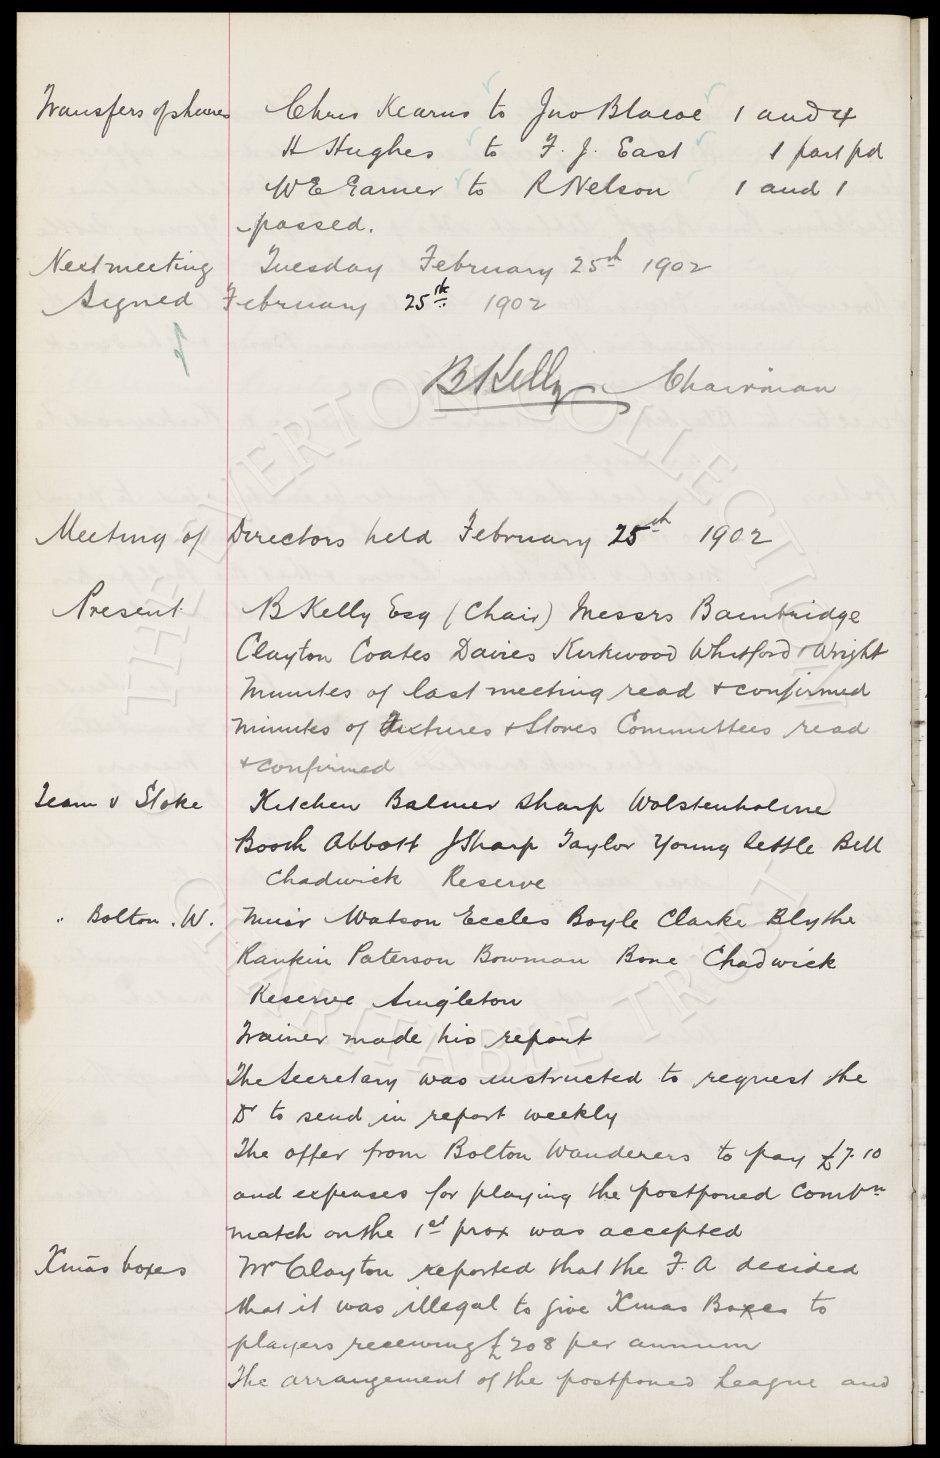 Transfers of shares Chris Kearns to Jno Blacoe 1 and 4
H Hughes to F. J. East 1 part pd
W E Earner to R Nelson 1 and 1
passed.
Next meeting Tuesday February 25th 1902
Signed February 25th 1902
B Kelly Chairman
Meeting of Directors held February 25th 1902
Present B Kelly Esq (Chair) Messrs Bainbridge
Clayton Coates Davies Kirkwood Whitford & Wright
Minutes of last meeting read & confirmed
Minutes of Fixtures & Stores Committees read
& confirmed
Team v Stoke Kitchen Balmer Sharp Wolstenholme
Booth Abbott J Sharp Taylor Young Settle Bell
Chadwick Reserve
" Bolton .W. Muir Watson Eccles Boyle Clarke Blythe
Rankin Paterson Bowman Bone Chadwick
Reserve Singleton
Trainer made his report
The Secretary was instructed to request the
Dr to send in report weekly
The offer from Bolton Wanderers to pay £7.10
and expenses for playing the postponed Combn
match on the 1st prox was accepted
Xmas boxes Mr Clayton reported that the F.A decided
that it was illegal to give Xmas Boxes to
players receiving £208 per annum
The arrangement of the postponed League and
THE EVERTON COLLECTION
CHARITABLE TRUST